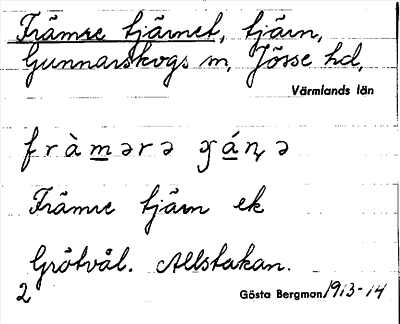 Främre tjärnet, tjärn,
Gunnarskogs sn, Jösse hd,
Värmlands län
fràmərə ʒánə
Främre tjärn ek
Grötvål. Allstakan.
2
Gösta Bergman 1913-14